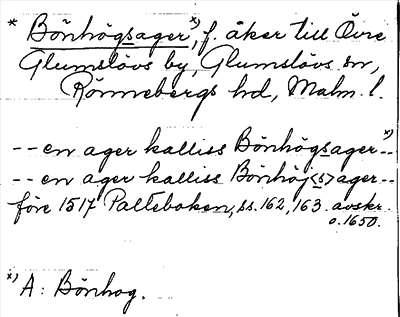 * Bönhögsager x), f. åker till Övre
Glumslövs by, Glumslövs sn,
Rönnebergs hd, Malm. l.
-- en ager kalliss Bönhögsager x) --
-- en ager kalliss Bönhöj<s>ager --
före 1517 Palteboken, ss. 162, 163. avskr.
o. 1650.
x) A: Bönhog.